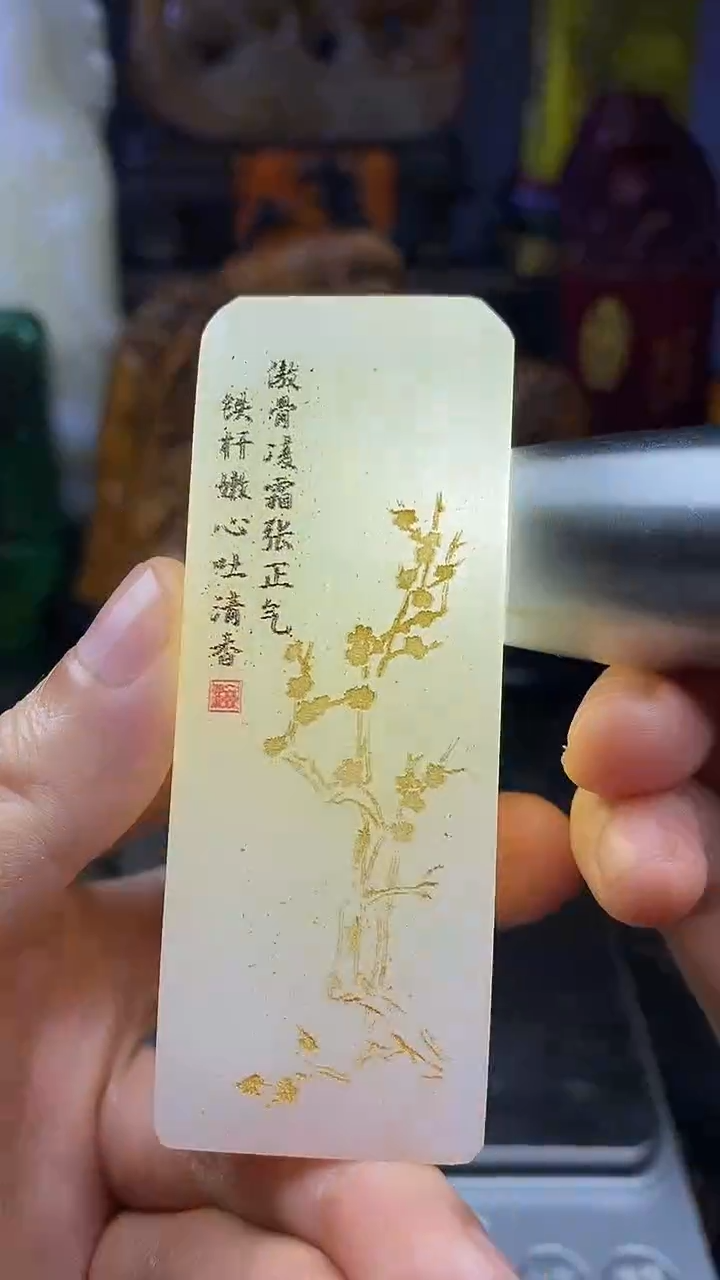 傲骨凌霜张正气
铁杆嫩心吐清香